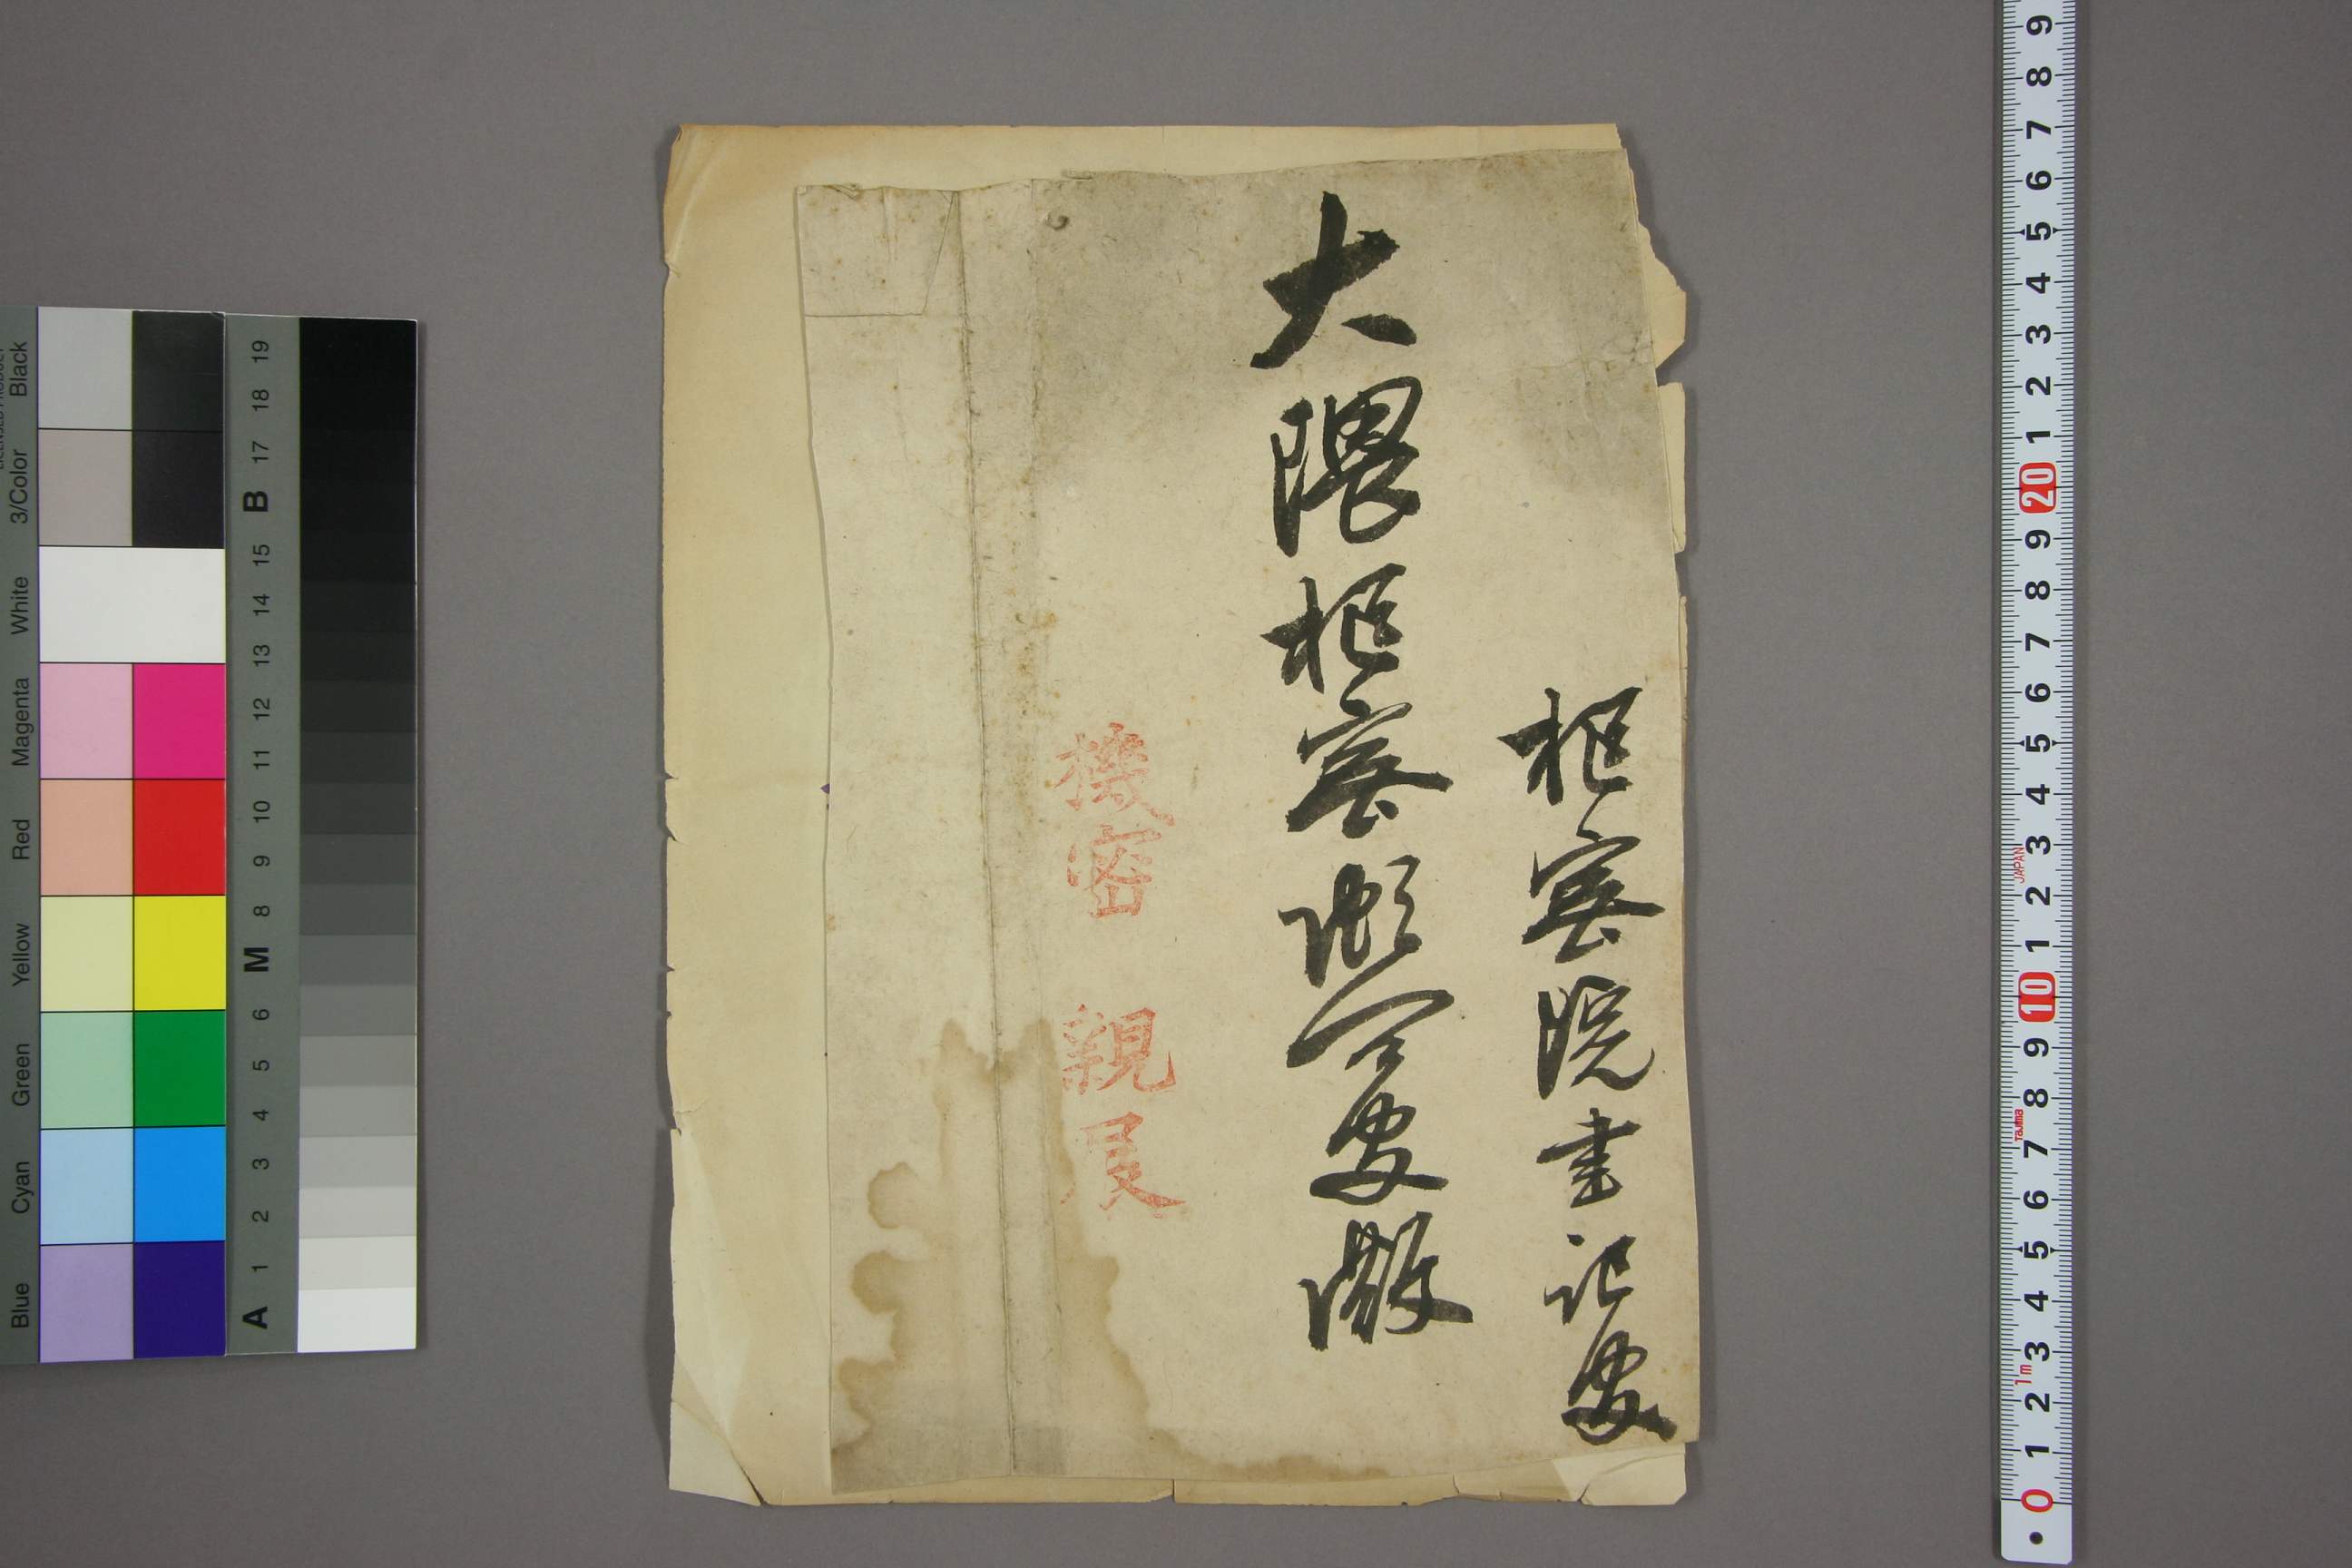 枢密院書記官
大隈枢密顧問官殿
機密 親展
Blue Cyan Green Yellow Red Magenta White 3/Color Black
A 1 2 3 4 5 6 M 8 9 10 11 12 13 14 15 B 17 18 19
0 1 2 3 4 5 6 7 8 9 10 1 2 3 4 5 6 7 8 9 20 1 2 3 4 5 6 7 8 9
1m Tajima JAPAN